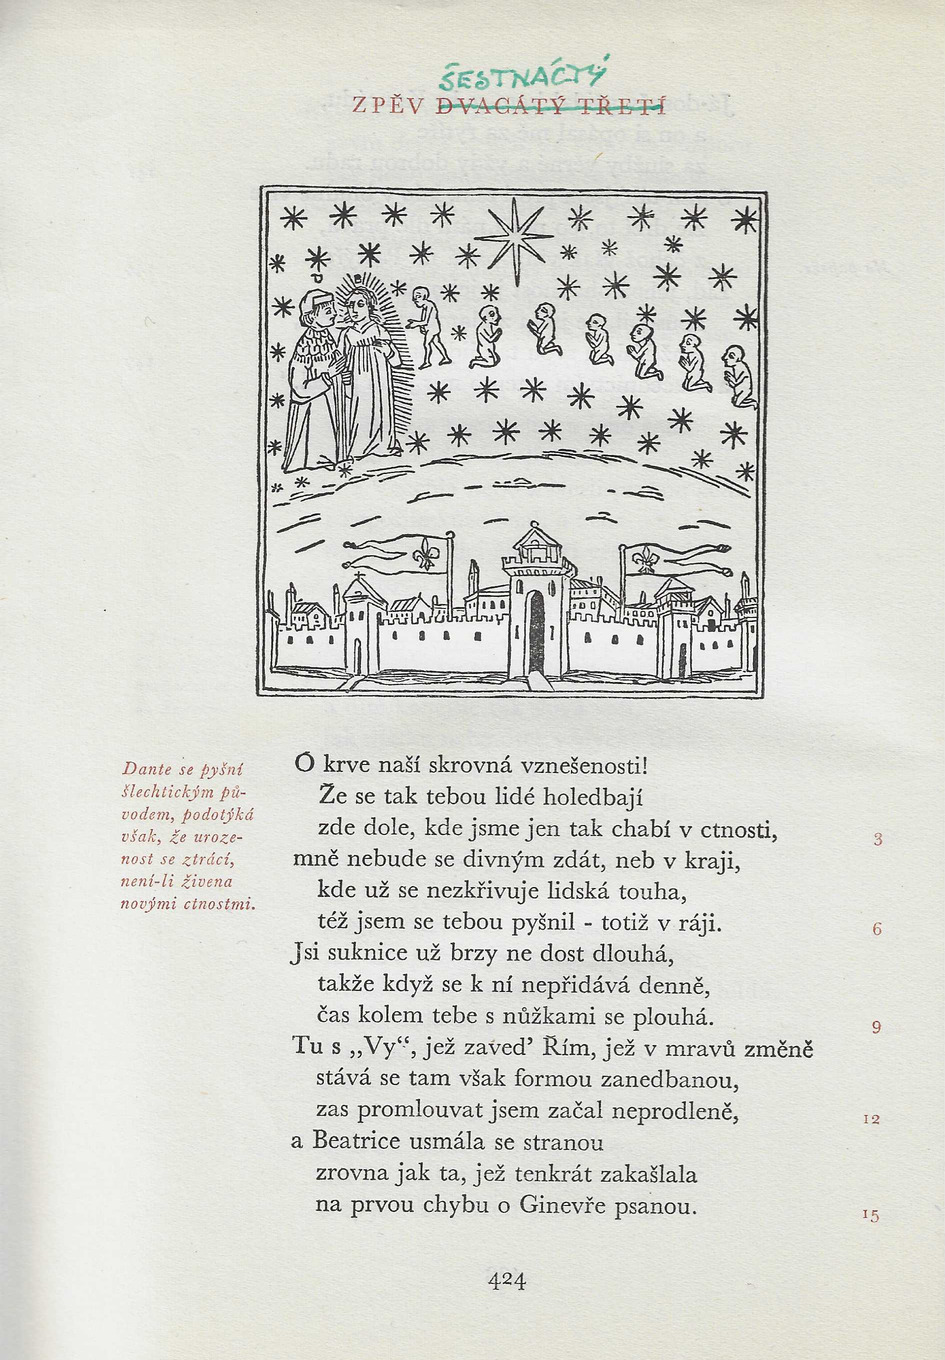 ŠESTNÁCTÝ
ZPĚV DVACÁTÝ TŘETÍ
D B
Dante se pyšní
šlechtickým pů-
vodem, podotýká
však, že uroze-
nost se ztrácí,
není-li živena
novými ctnostmi.
Ó krve naší skrovná vznešenosti!
Že se tak tebou lidé holedbají
zde dole, kde jsme jen tak chabí v ctnosti,
3
mně nebude se divným zdát, neb v kraji,
kde už se nezkřivuje lidská touha,
též jsem se tebou pyšnil - totiž v ráji.
6
Jsi suknice už brzy ne dost dlouhá,
takže když se k ní nepřidává denně,
čas kolem tebe s nůžkami se plouhá.
9
Tu s „Vy“, jež zaved’ Řím, jež v mravů změně
stává se tam však formou zanedbanou,
zas promlouvat jsem začal neprodleně,
12
a Beatrice usmála se stranou
zrovna jak ta, jež tenkrát zakašlala
na prvou chybu o Ginevře psanou.
15
424